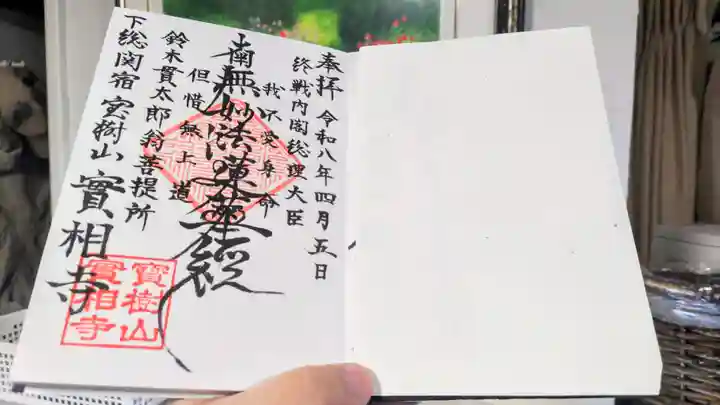 奉拝 令和八年四月五日
終戦内閣総理大臣
我不愛身命
南無妙法蓮華経
但惜無上道
鈴木貫太郎翁菩提所
下総関宿 宝樹山 實相寺
寶樹山
實相寺